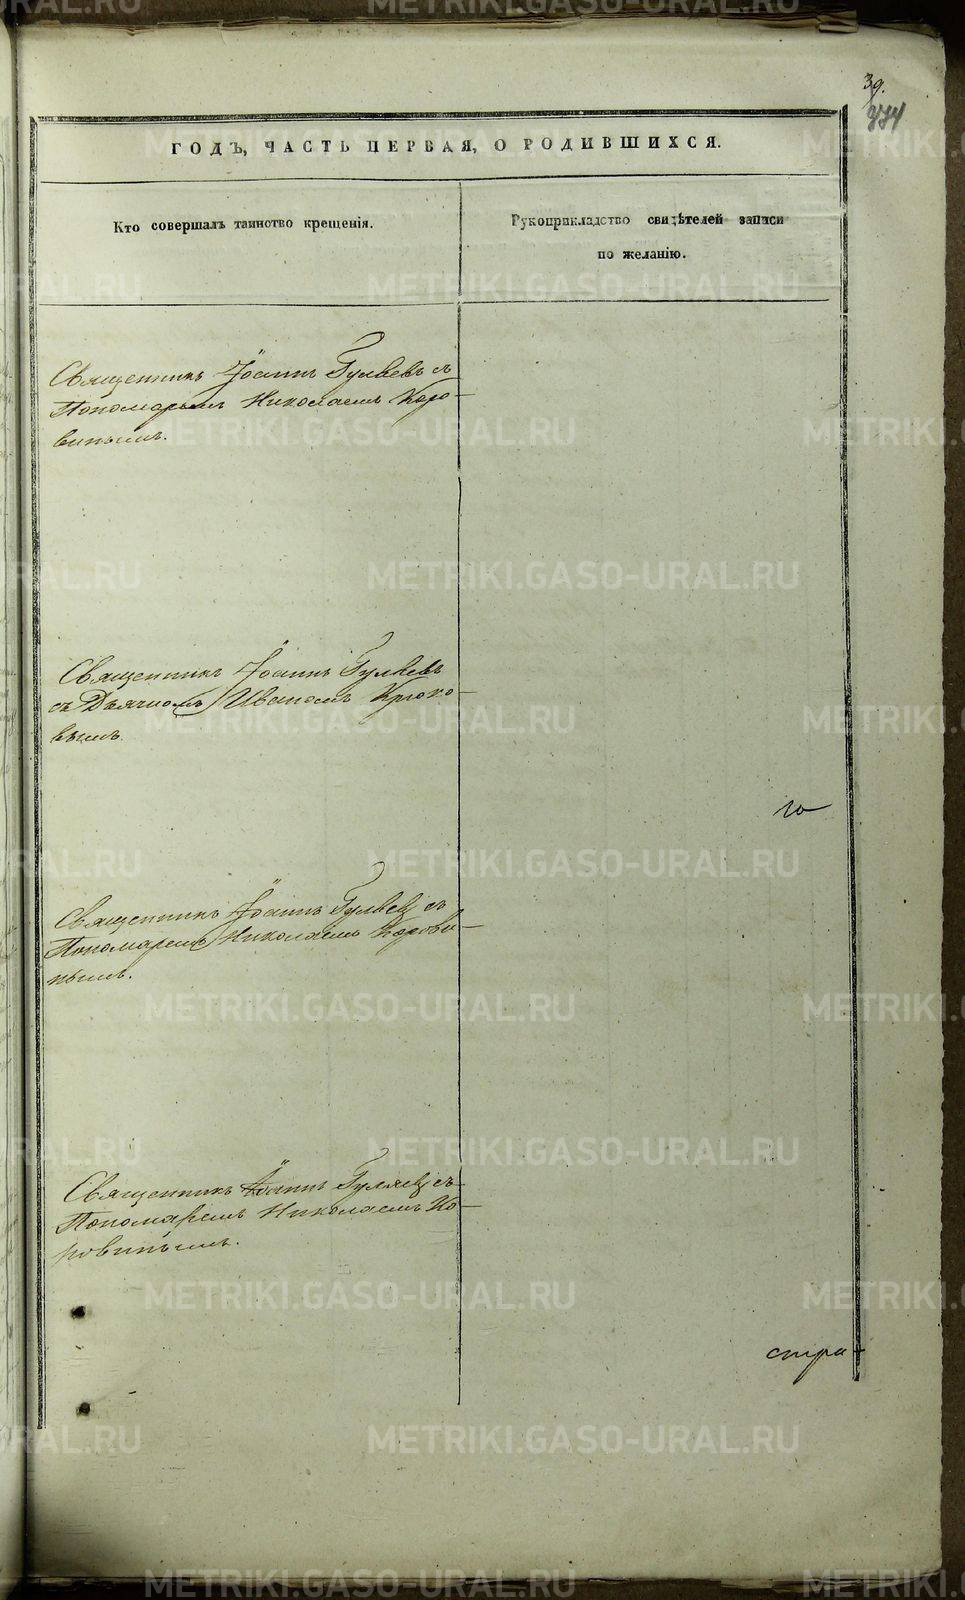 39.
474
ГОДЪ, ЧАСТЬ ПЕРВАЯ, О РОДИВШИХСЯ.
Кто совершалъ таинство крещенія.
Рукоприкладство свидѣтелей записи
по желанію.
Священникъ Іоаннъ Гуляевъ съ
Пономаремъ Николаемъ Коро-
винымъ.
Священникъ Іоаннъ Гуляевъ
съ Дьячкомъ Иваномъ Крюко-
вымъ.
го
Священникъ Іоаннъ Гуляевъ съ
Пономаремъ Николаемъ Корови-
нымъ.
Священникъ Іоаннъ Гуляевъ съ
Пономаремъ Николаемъ Ко-
ровинымъ.
стра-
METRIKI.GASO-URAL.RU